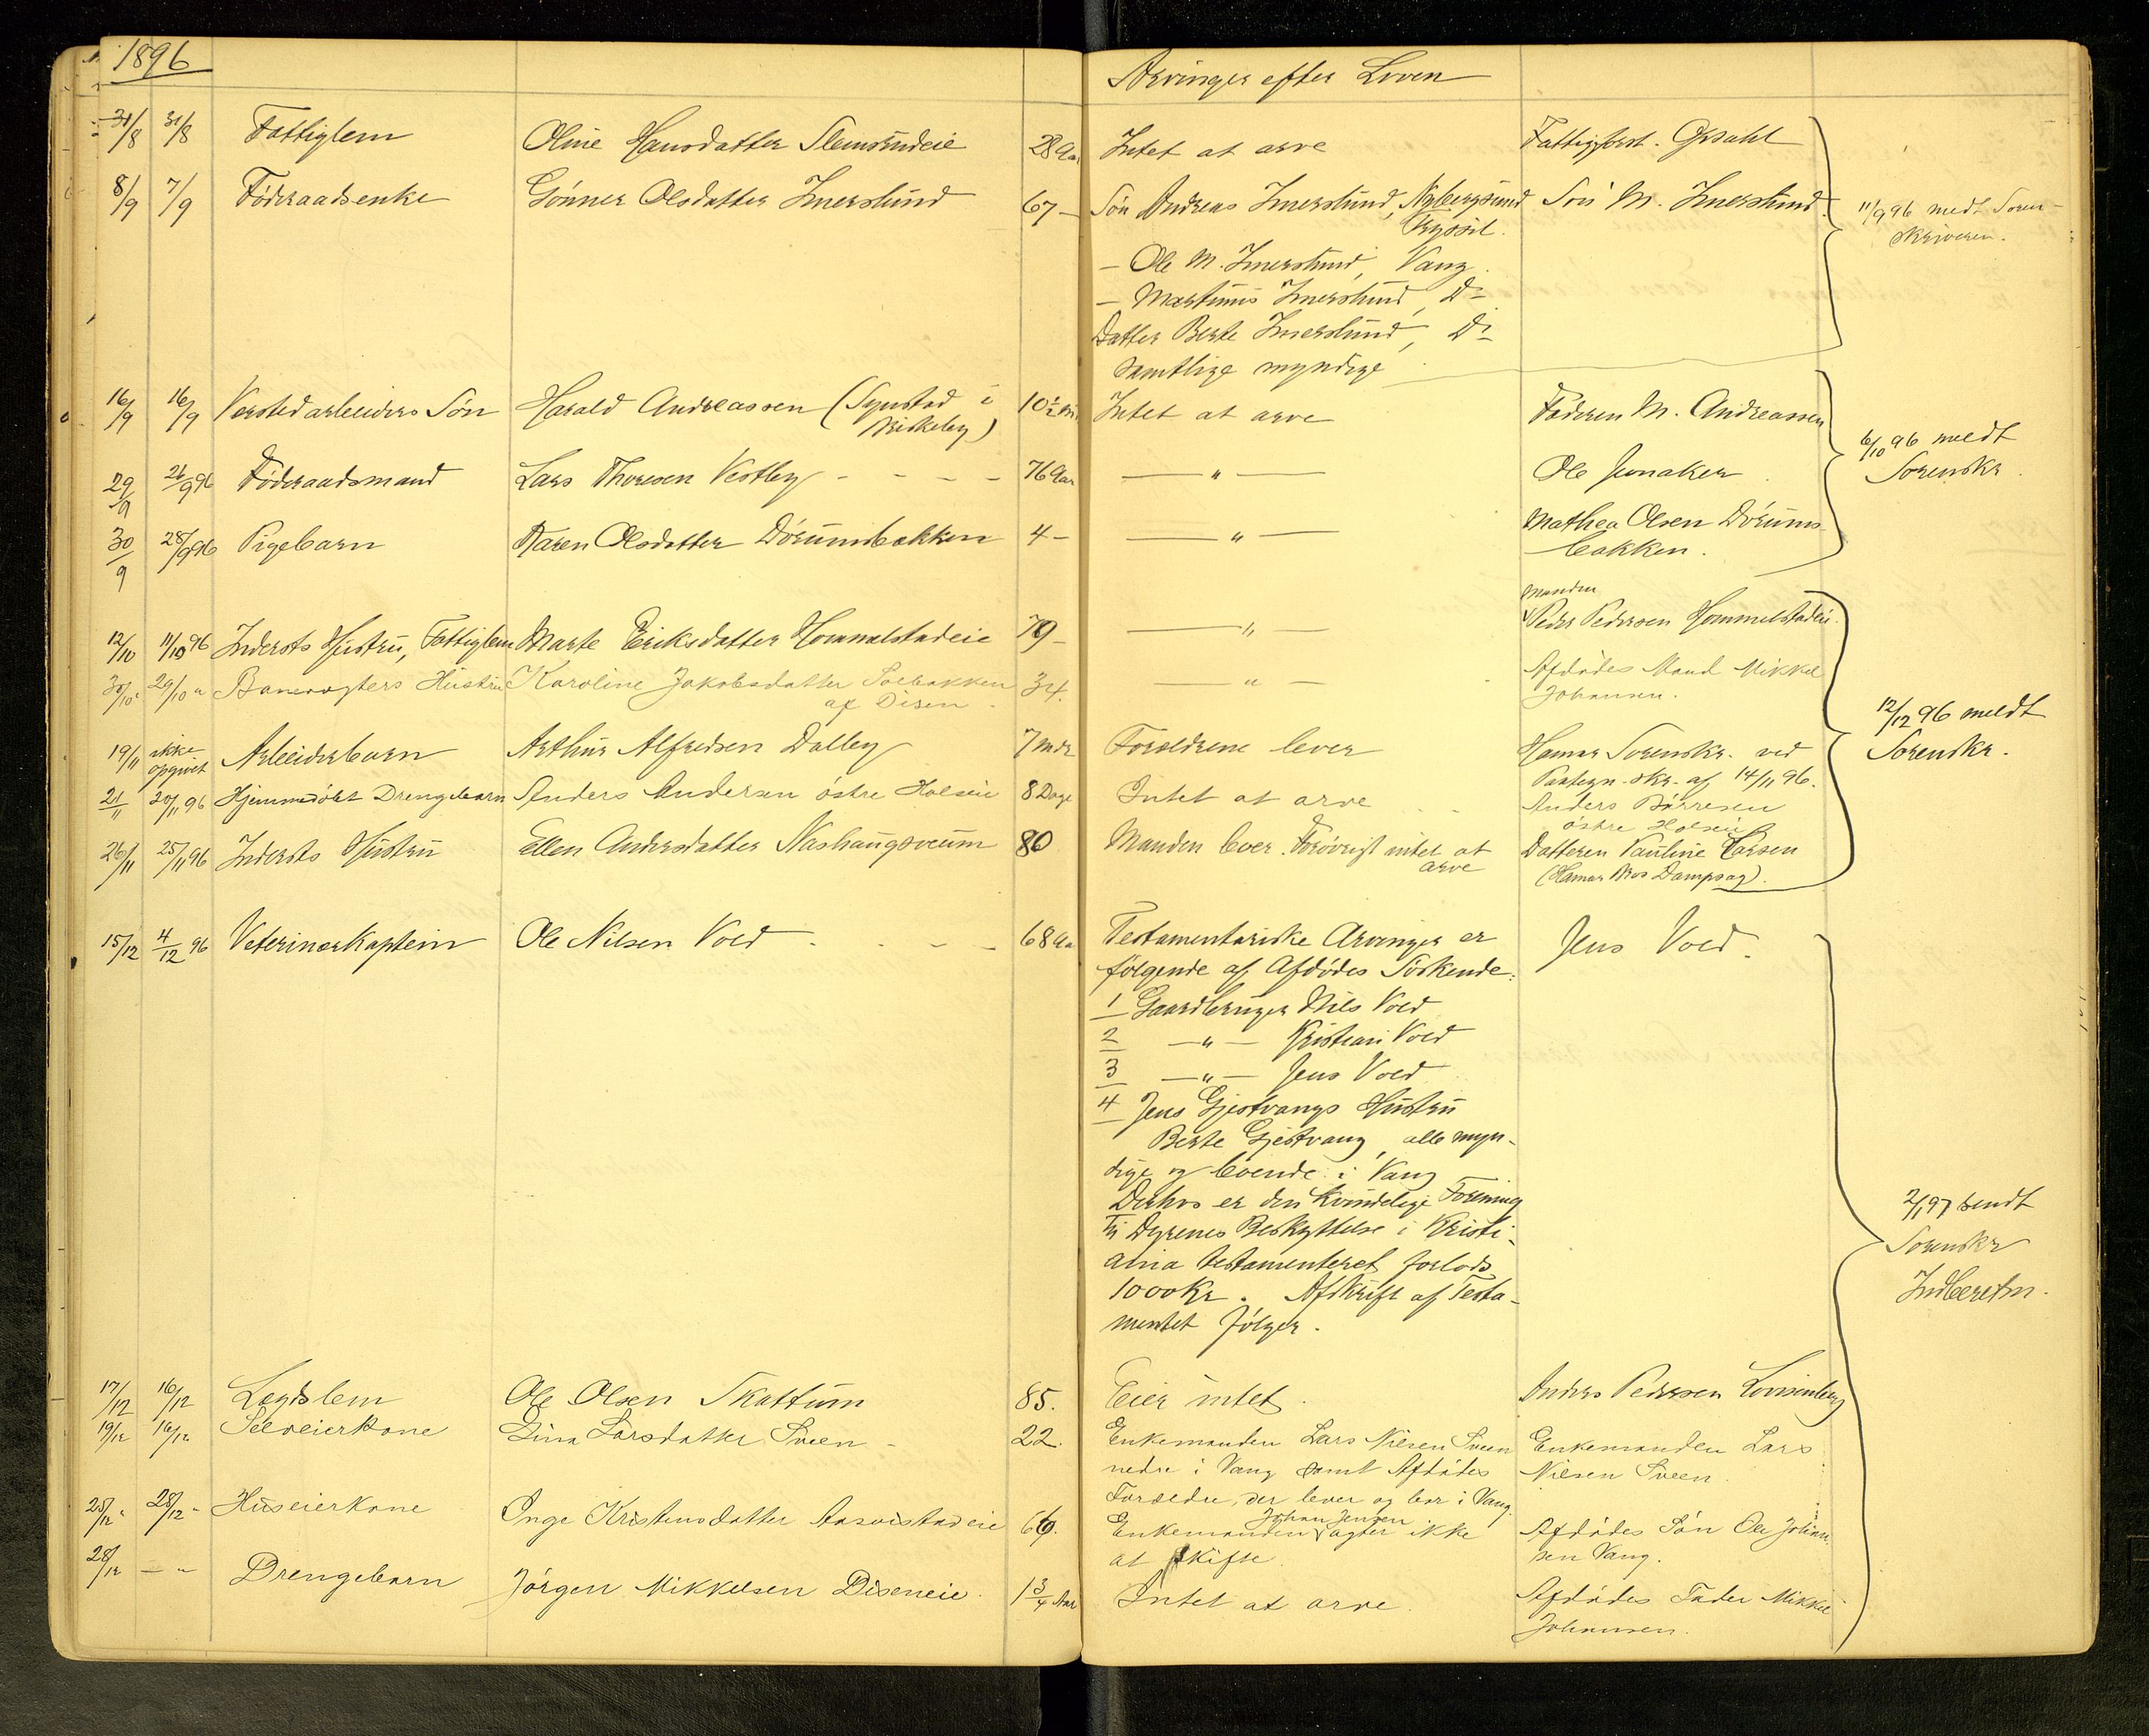 1896
Arvinger efter Loven
31/8 31/8 Fattiglem Oline Hansdatter Slemsrudeie 28 Aar Intet at arve Fattigforst. Grsahl
8/9 7/9 Føderaadsenke Gønner Olsdatter Imerslund 67 – Søn Andreas Imerslund, Nybergsund Søn M. Imerslund 11/9 96 medt Soren-
Trysil. skriveren.
– Ole M. Imerslund, Vang
– Martinus Imerslund, Do
Datter Berte Imerslund, Do
samtlige myndige
16/9 16/9 Verstedarbeiders Søn Harald Andreassen (Synstad i 10½ Intet at arve Faderen M. Andreassen
Birkeby) 6/10 96 meldt
29/9 26/9 96 Føderaadsmand Lars Thoresen Vestby - - - - 76 Aar — " — Ole Junaker Sorenskr.
30/9 28/9 96 Pigebarn Karen Olsdatter Dørumsbakken 4 – — " — Mathea Olsen Dørums-
bakken.
Manden
12/10 11/10 96 Indersts Hustru, Fattiglem Marte Eriksdatter Hommelstadeie 79 – — " — Peder Pedersen Hommelstadeie.
30/10 " 29/10 " Banevogters Hustru Karoline Jakobsdatter Solbakken 34. — " — Afdødes Mand Mikkel
af Disen - Johansen.
12/12 96 meldt
19/11 ikke Arbeiderbarn Arthur Alfredsen Dalby 7 mdr Forældrene lever Hamar Sorenskr. ved Sorenskr.
opgivet Paategn. skr. af 14/11 96.
21/11 20/11 96 Hjemmedøbt Drengebarn Anders Andersen østre Holseie 8 Dage Intet at arve Anders Børresen
østre Holseie
26/11 25/11 96 Indersts Hustru Ellen Andersdatter Nashaugsveum 80 Manden lever. Forøvrigt intet at Datteren Pauline Larsen
arve (Hamar Bros Dampsag).
15/12 4/12 96 Veterinærkaptein Ole Nilsen Vold - - - 68 Aa Testamentariske Arvinger er Jens Vold.
følgende af Afdødes Søskende:
1 Gaardbruger Nils Vold
2 — " — Kristian Vold
3 — " — Jens Vold
4 Jens Gjestvangs Hustru
Berte Gjestvang, alle myn-
dige og boende i Vang
Derhos er den Kvindelige Forening 2/1 97 sendt
til Dyrenes Beskyttelse i Kristi-
ania testamenteret forlods Sorenskr
1000 Kr. Afskrift af Testa- Indberetn.
mentet følger.
17/12 16/12 Lægdslem Ole Olsen Skattum 85. Eier intet. Anders Pedersen Lovisenberg
19/12 16/12 Selveierkone Dina Larsdatter Sveen - 22. Enkemanden Lars Nilsen Sveen Enkemanden Lars
nedre i Vang samt Afdødes Nilsen Sveen.
Forældre, der lever og bor i Vang.
Johan Jensen
25/12 " 28/12 - Huseierkone Inge Kristensdatter Aasvistadeie 66. Enkemanden agter ikke Afdødes Søn Ole Johan-
at skifte. sen Vang.
28/12 – " Drengebarn Jørgen Mikkelsen Diseneie. 1¾ Aar Intet at arve. Afdødes Fader Mikkel
Johansen.